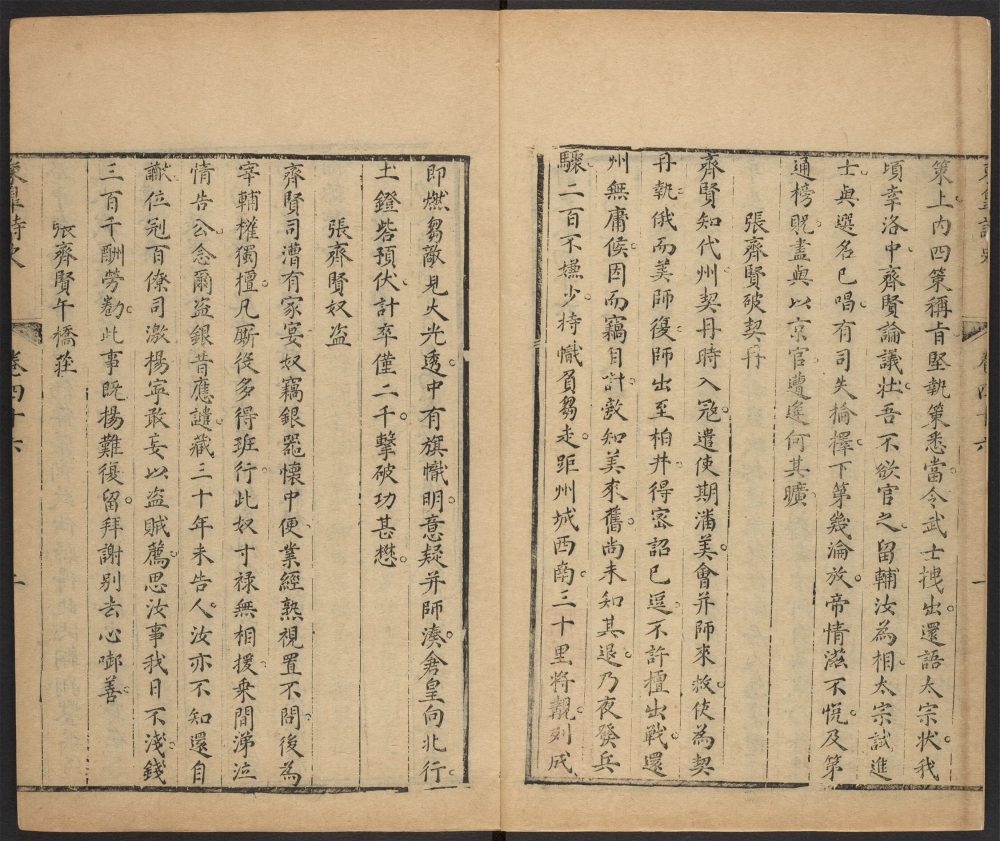 策上内四策稱旨堅執策悉當令武士拽出還語太宗狀我
頃幸洛中齊賢論議壯吾不欲官之留輔汝為相太宗試進
士與選名已唱有司失掄擇下第幾淪放帝情滋不悅及第
通榜既盡與以京官遭逢何其曠
張齊賢破契丹
齊賢知代州契丹時入寇遣使期潘美會并師來救使為契
丹執俄而美師復師出至柏井得密詔已逗不許擅出戰還
州無庸俟因而竊自計敵知美來舊尚未知其退乃夜發兵
驟二百不嫌少持幟負芻走距州城西南三十里將覯列戍
卷四十六
一
即燃芻敵見火光透中有旗幟明意疑并師湊倉皇向北行
土鐙砦預伏計卒僅二千擊破功甚懋
張齊賢奴盜
齊賢司漕有家宴奴竊銀器懷中便業經熟視置不問後為
宰輔權獨擅凡廝役多得班行此奴寸祿無相援乘間涕泣
情告公念爾盜銀昔應譴藏三十年未告人汝亦不知還自
讞位冠百僚司激揚寧敢妄以盜賊薦思汝事我日不淺錢
三百千酬勞勸此事既揚難復留拜謝別去心啣善
張齊賢午橋莊
卷四十六
二